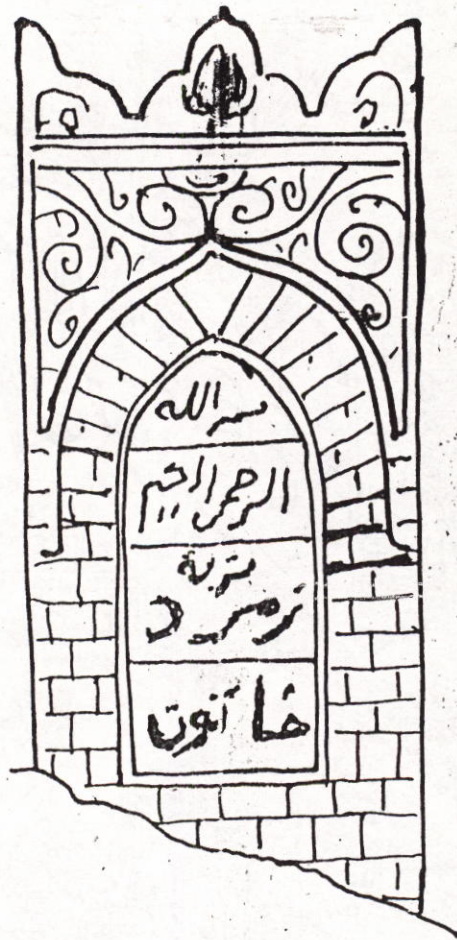 بسم الله
الرحمن الرحيم
تربة
زمرد
خاتون